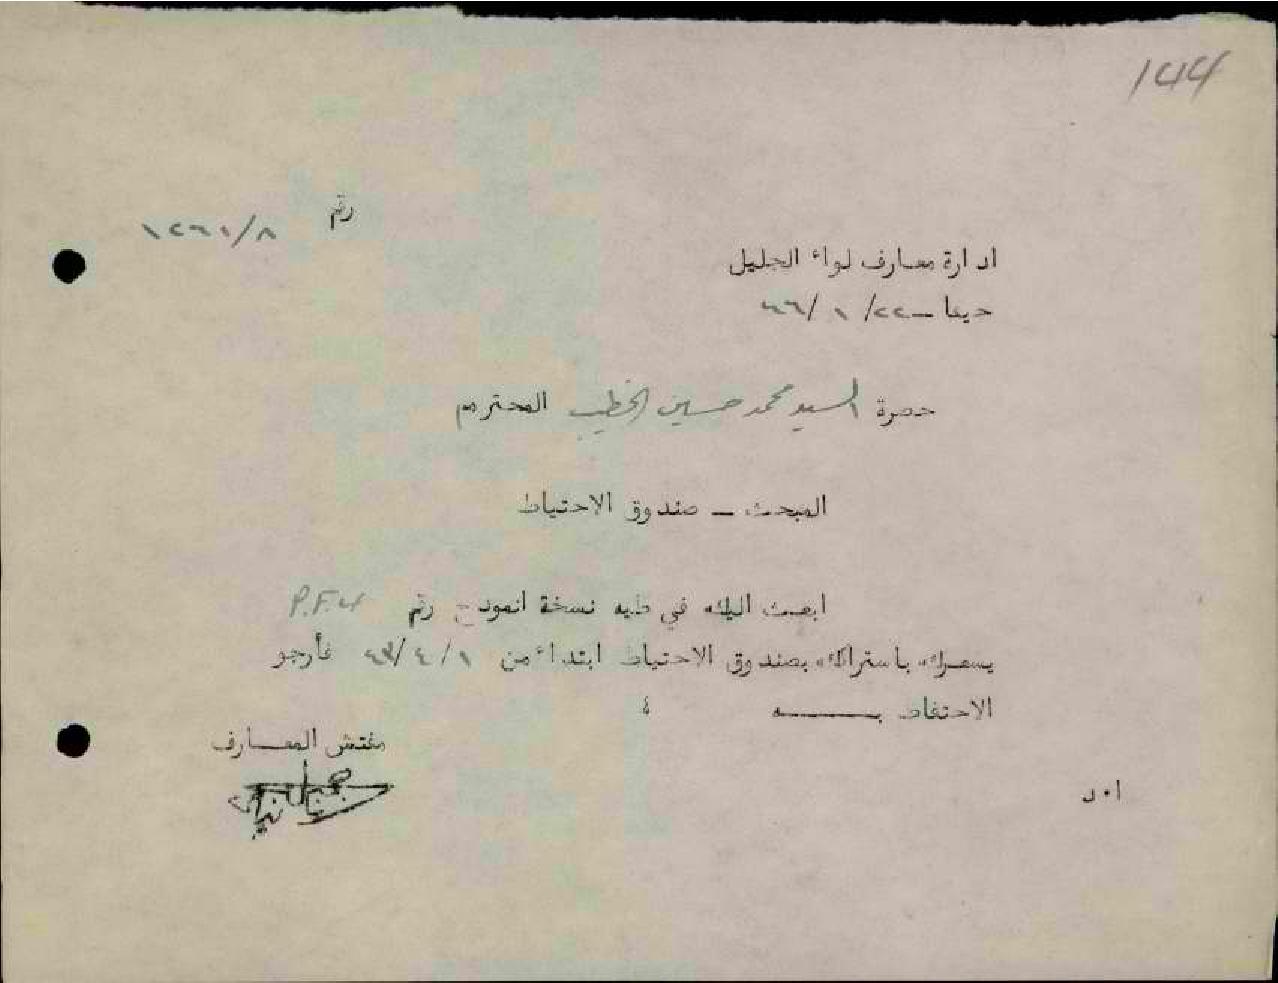 144
رقم ١٢٦١/٨
ادارة معارف لواء الجليل
حيفا - ٢٢/ ١ /٤٦
حضرة السيد محمد حسين الخطيب المحترم
المبحث - صندوق الاحتياط
ابعث اليك في طيه نسخة انموذج رقم P.F.4
يشعرك باشتراكك بصندوق الاحتياط ابتداء من ٤٣/٤/١ فأرجو
الاحتفاظ بـــه ٤
مفتش المعـــارف
ا٠د